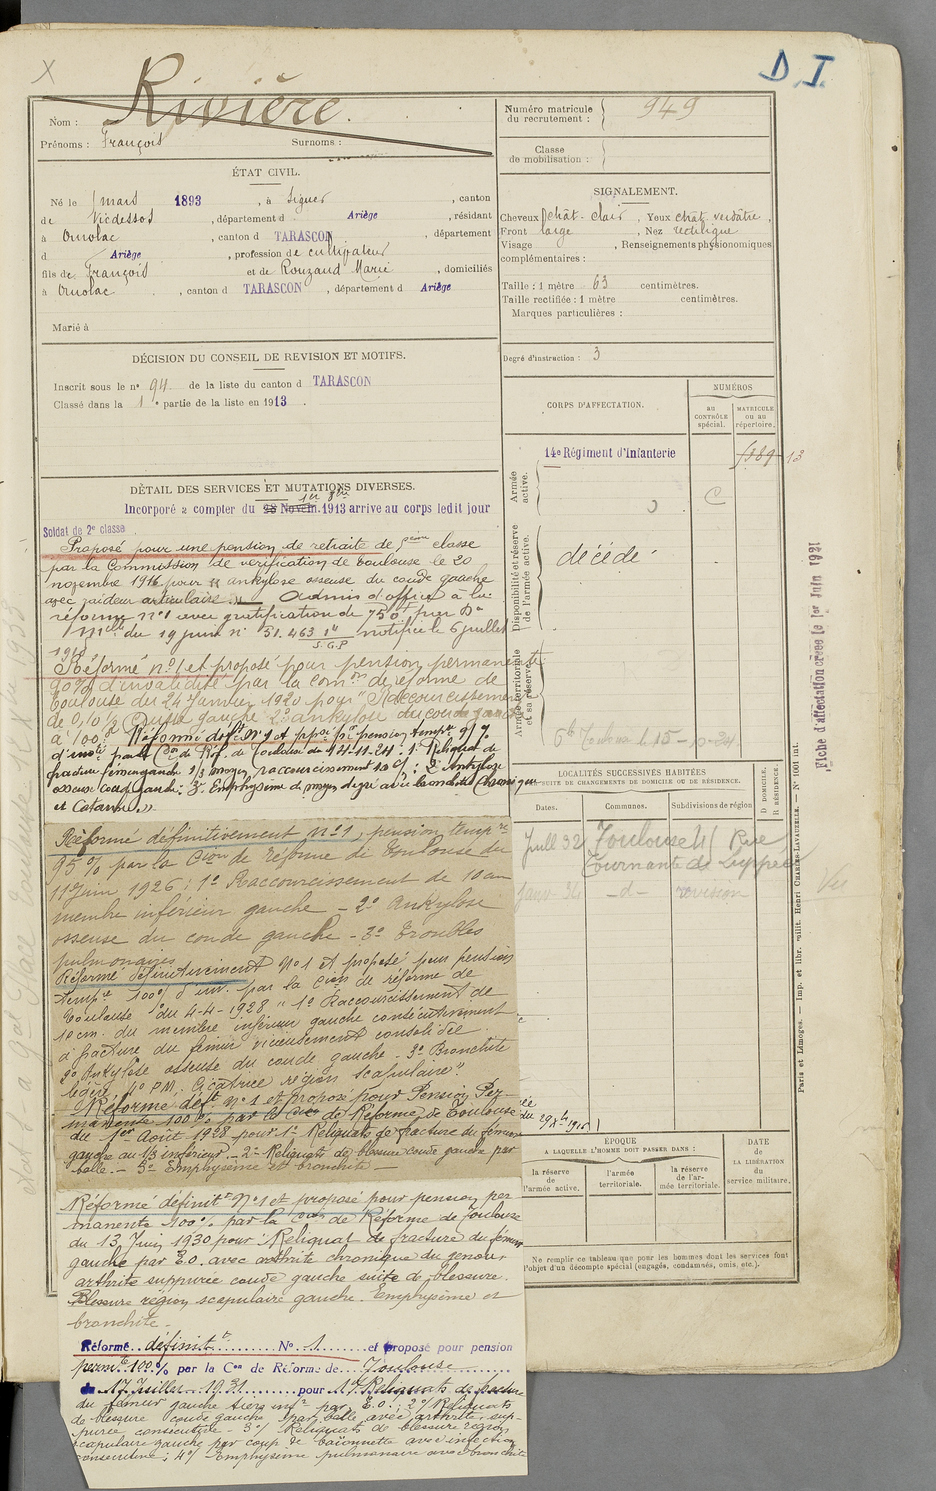 X
D I
Nom : Rivière.
Prénoms : François Surnoms :
ÉTAT CIVIL.
Né le mars 1893, à Siguer, canton
de Vicdessos, département d Ariège, résidant
à Ornolac, canton d TARASCON, département
d Ariège, profession de cultivateur
fils de François et de Rouzaud Marie, domiciliés
à Ornolac, canton d TARASCON, département d Ariège
Marié à
DÉCISION DU CONSEIL DE REVISION ET MOTIFS.
Inscrit sous le n° 94 de la liste du canton d TARASCON
Classé dans la 1e partie de la liste en 1913.
DÉTAIL DES SERVICES ET MUTATIONS DIVERSES.
Incorporé à compter du 28 Novem. 1913 arrive au corps ledit jour
Soldat de 2e classe
Proposé pour une pension de retraite de 5eme classe
par la Commission de vérification de Toulouse le 20
novembre 1916 pour ankylose osseuse du coude gauche
avec raideur articulaire. Admis d'office à la
réforme n°1 avec gratification de 750f par Don
Mlle du 19 juin n° 51.463 notifiée le 6 juillet
S.G.P
Réformé n°1 et proposé pour pension permanente
90% d'invalidité par la Comon de réforme de
Toulouse du 24 Janvier 1920 pour "Raccourcissement
de 0,10 Cuisse gauche 2° ankylose du coude gauche
à 100°
Réformé deft N°1 et ppsé pr pension tempre 95%
d'invté par la Con de Réf. de Toulouse du 14-11-24. 1° Reliquat de
fracture fémur gauche 1/3 moyen, raccourcissement 10 c/m : 2° Ankylose
osseuse coude gauche : 3° Emphysème d moyen degré avec bronchite chronique
et Catarrhe.»
Réformé définitivement n°1, pension tempre
95% par la Cion de réforme de Toulouse du
11 Juin 1926 : 1° Raccourcissement de 10 cm
membre inférieur gauche - 2° Ankylose
osseuse du coude gauche - 3° Troubles
pulmonaires
Réformé définitivement N°1 et proposé pour pension
tempre 100% d'inv. par la Cion de réforme de
Toulouse du 4-4-1928 " 1° Raccourcissement de
10 cm. du membre inférieur gauche consécutivement
à fracture du fémur vicieusement consolidée
2° Ankylose osseuse du coude gauche - 3° Bronchite
légère 4° P.M. Cicatrice région scapulaire".
Réformé deft N°1 et proposé pour Pension Per-
manente 100% par la Cion de Réforme de Toulouse
du 1er Août 1928 pour 1° Reliquats de fracture du fémur
gauche au 1/3 inférieur. - 2° Reliquats de blessure coude gauche par
balle. - 3° Emphysème et bronchite -
Réformé définitt N°1 et proposé pour pension per
manente 100% par la Cion de Réforme de Toulouse
du 13 Juin 1930 pour : Reliquat de fracture du fémur
gauche par E.O. avec arthrite chronique du genou,
arthrite suppurée coude gauche suite de blessure.
Blessure région scapulaire gauche. Emphysème et
bronchite -
Réformé définitt N° 1 et proposé pour pension
permte 100% par la Con de Réforme de Toulouse
du 17 Juillet 1931 pour 1°/ Reliquats de fracture
du fémur gauche tiers infr par E.O. ; 2°/ Reliquats
de blessure coude gauche par balle avec arthrite sup-
purée consécutive - 3°/ Reliquats de blessure région
scapulaire gauche par coup de baïonnette avec infection
consécutive ; 4°/ Emphysème pulmonaire avec bronchite
Numéro matricule
du recrutement : 949
Classe
de mobilisation :
SIGNALEMENT.
Cheveux chât. clair, Yeux chât. verdâtre,
Front large, Nez rectiligne
Visage, Renseignements physionomiques
complémentaires :
Taille : 1 mètre 63 centimètres.
Taille rectifiée : 1 mètre centimètres.
Marques particulières :
Degré d'instruction : 3
CORPS D'AFFECTATION.
NUMÉROS
au
CONTRÔLE
spécial.
MATRICULE
ou au
répertoire.
Armée
active.
14e Régiment d'Infanterie
Disponibilité et réserve
de l'armée active.
décédé
Armée territoriale
et sa réserve.
15-10-24.
LOCALITÉS SUCCESSIVES HABITÉES
PAR SUITE DE CHANGEMENTS DE DOMICILE OU DE RÉSIDENCE.
Dates.
Communes.
Subdivisions de région
D DOMICILE,
R RÉSIDENCE.
Juill 32 Toulouse 41 Rue
Tournante de Suppres
Janv. 34 -d- révision
Vu
ÉPOQUE
A LAQUELLE L'HOMME DOIT PASSER DANS :
la réserve
de
l'armée active.
l'armée
territoriale.
la réserve
de l'ar-
mée territoriale.
DATE
de
LA LIBÉRATION
du
service militaire.
Ne remplir ce tableau que pour les hommes dont les services font
l'objet d'un décompte spécial (engagés, condamnés, omis, etc.).
Paris et Limoges. — Imp. et libr. milit. Henri CHARLES-LAVAUZELLE. — N° 1001 int.
Fiche d'affectation créée le 1er Juin 1921